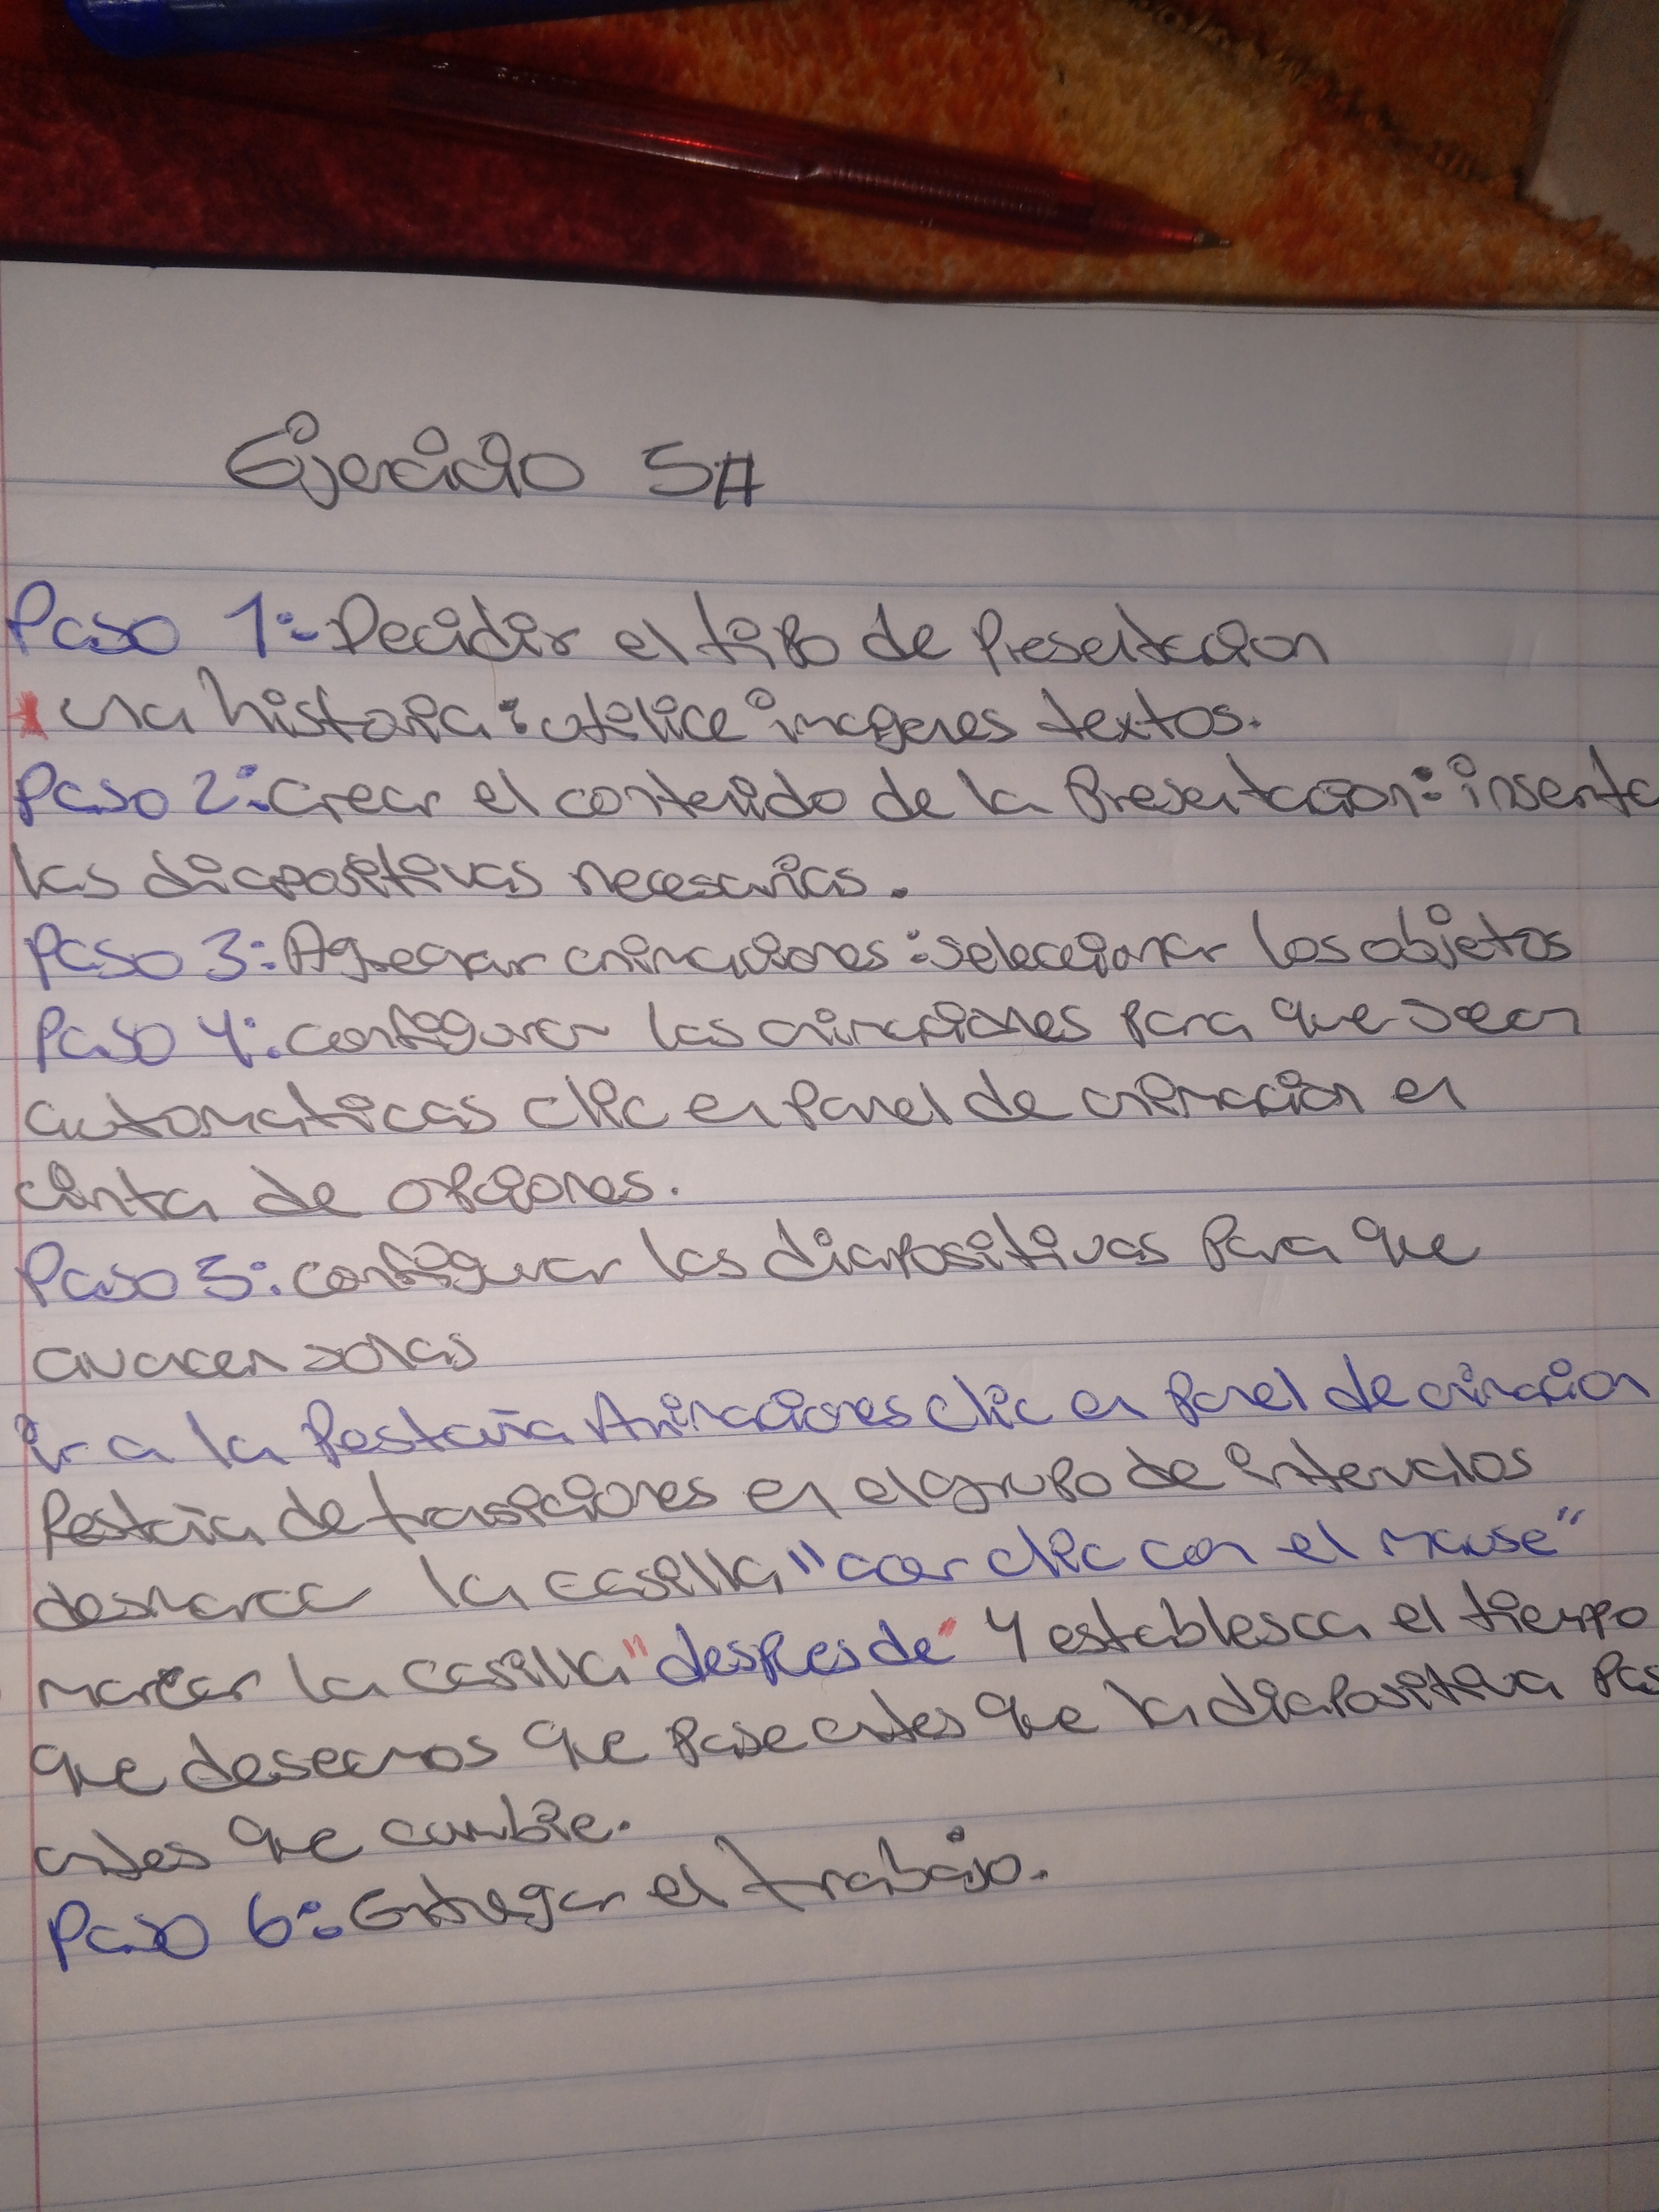 Ejercicio 5#
Paso 1: Decidir el tipo de Presentacion
* una historia: utilice imagenes textos.
Paso 2: crear el contenido de la Presentacion: inserte
las diapositivas necesarias.
Paso 3: Agregar animaciones: seleccionar los objetos
Paso 4: configurar las animaciones para que sean
automaticas clic en Panel de animacion en
cinta de opciones.
Paso 5: configurar las diapositivas Para que
avacen solas
ir a la Pestaña Animaciones clic en panel de animacion
Pestaña de transiciones en el grupo de intervalos
desmarca la casilla "acer clic con el mause"
marcar la casilla "despues de" y establesca el tiempo
que deseamos que pase antes que la diapositiva
antes que cambie.
Paso 6: Entregar el trabajo.